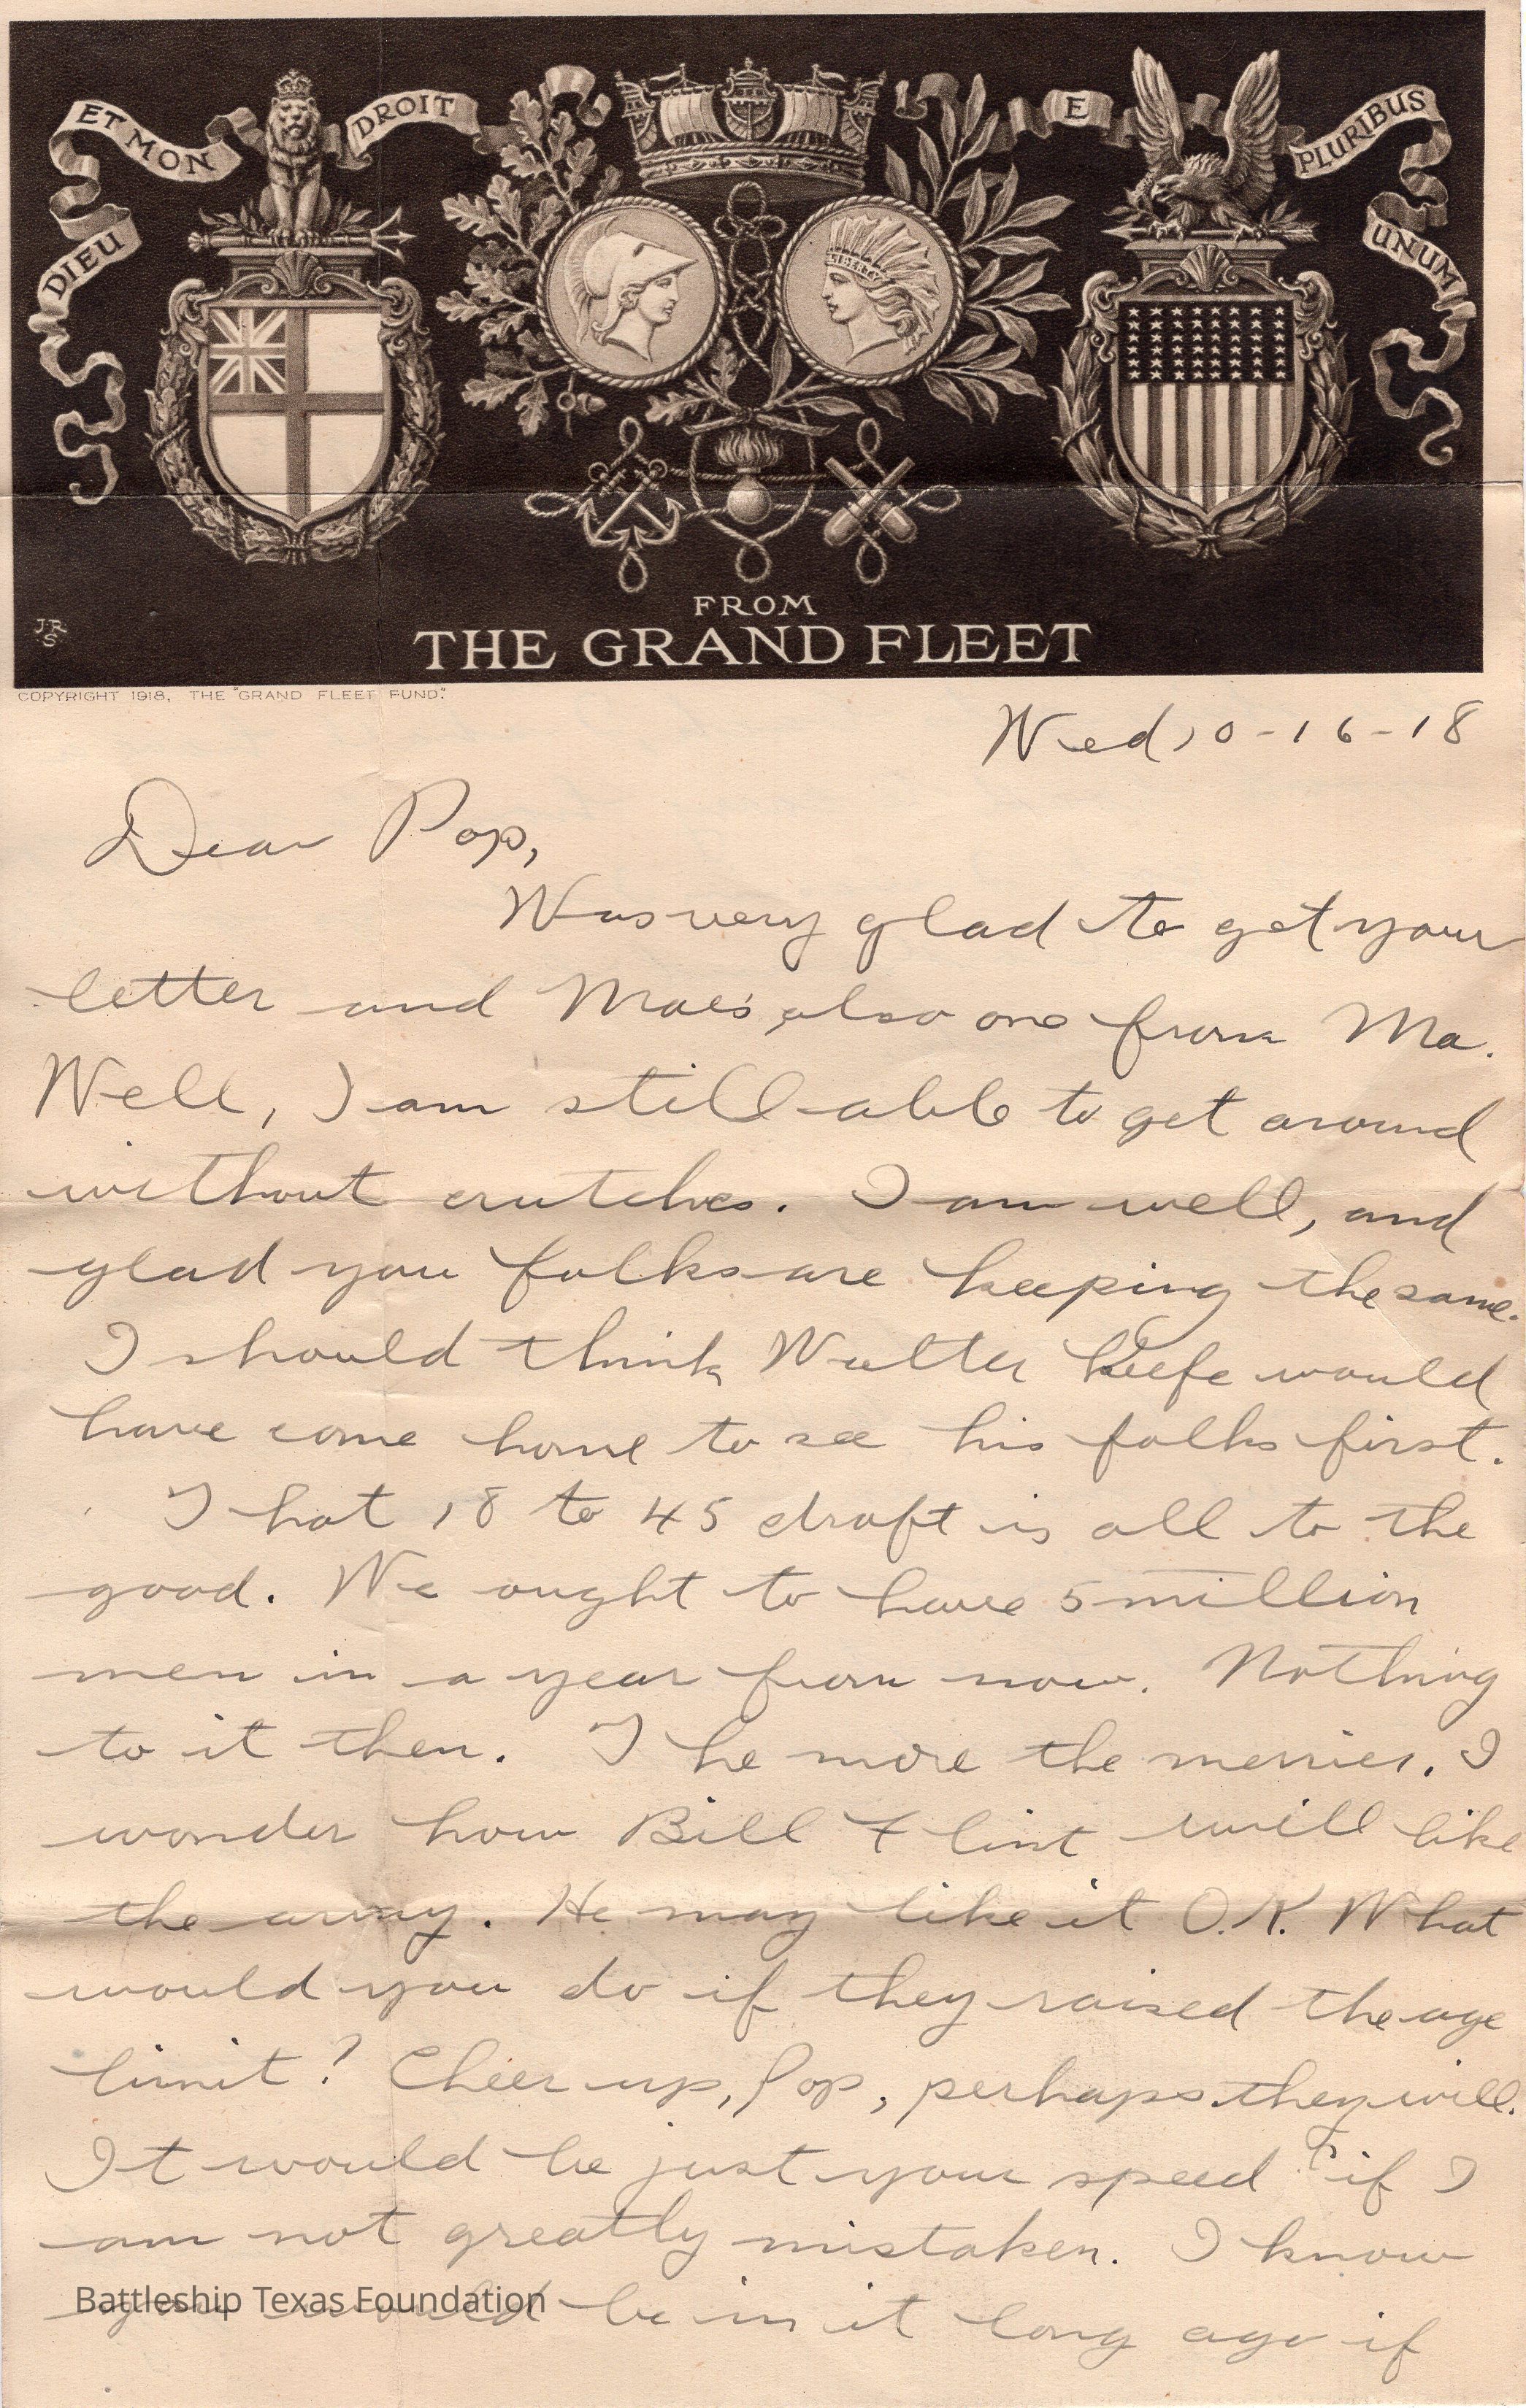 ET MON DROIT
DIEU
E PLURIBUS
UNUM
JR
S
FROM
THE GRAND FLEET
COPYRIGHT 1918, THE "GRAND FLEET FUND."
Wed, 10-16-18
Dear Pop,
Was very glad to get your
letter and Mae's, also one from Ma.
Well, I am still able to get around
without crutches. I am well, and
glad you folks are keeping the same.
I should think Walter Keefe would
have come home to see his folks first.
That 18 to 45 draft is all to the
good. We ought to have 5 million
men in a year from now. Nothing
to it then. The more the merrier. I
wonder how Bill Flint will like
the army. He may like it O.K. What
would you do if they raised the age
limit? Cheer up, Pop, perhaps they will.
It would be just your speed if I
am not greatly mistaken. I know
you would be in it long ago if
Battleship Texas Foundation